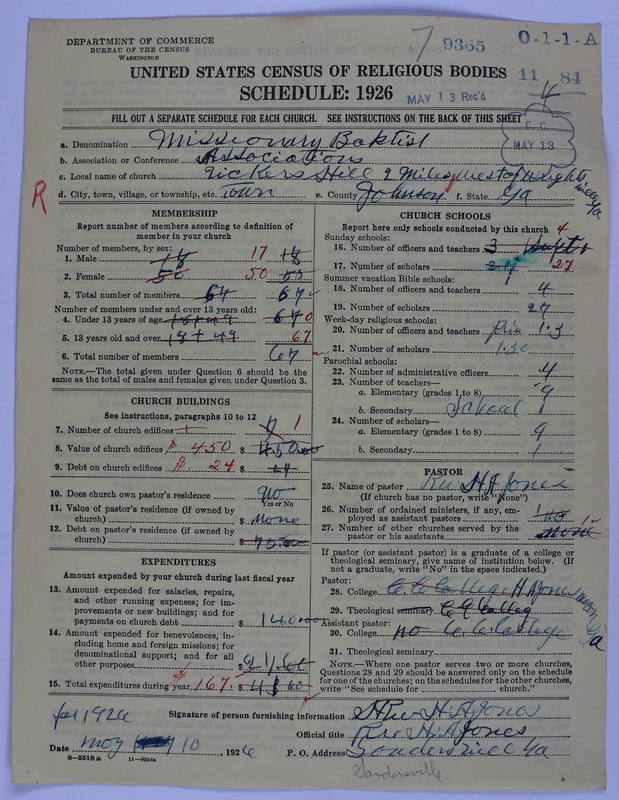 DEPARTMENT OF COMMERCE
BUREAU OF THE CENSUS
WASHINGTON
7 9365 0-1-1-A
UNITED STATES CENSUS OF RELIGIOUS BODIES 11 84
SCHEDULE: 1926 MAY 13 Rec'd 4
FILL OUT A SEPARATE SCHEDULE FOR EACH CHURCH. SEE INSTRUCTIONS ON THE BACK OF THIS SHEET
C. C. MAY 13
a. Denomination Missionary Baptist
b. Association or Conference Associations
c. Local name of church Hill 2 Miles West of
R
d. City, town, village, or township, etc. Town e. County Johnson f. State Ga
MEMBERSHIP
Report number of members according to definition of
member in your church
Number of members, by sex:
1. Male 17
2. Female 50 50
3. Total number of members 64 67
Number of members under and over 13 years old:
4. Under 13 years of age 0
5. 13 years old and over 67
6. Total number of members 67
NOTE.—The total given under Question 6 should be
the same as the total of males and females given under Question 3.
CHURCH BUILDINGS
See instructions, paragraphs 10 to 12
7. Number of church edifices 1
8. Value of church edifices $ 450 $ 450.00
9. Debt on church edifices $ 24 $
10. Does church own pastor's residence No
Yes or No
11. Value of pastor's residence (if owned by
church) $ None
12. Debt on pastor's residence (if owned by
church) $
EXPENDITURES
Amount expended by your church during last fiscal year
13. Amount expended for salaries, repairs,
and other running expenses; for im-
provements or new buildings; and for
payments on church debt $ 140
14. Amount expended for benevolences, in-
cluding home and foreign missions; for
denominational support; and for all
other purposes $
15. Total expenditures during year 167. $
CHURCH SCHOOLS
Report here only schools conducted by this church
Sunday schools: 4
16. Number of officers and teachers 3
17. Number of scholars 27
Summer vacation Bible schools:
18. Number of officers and teachers 4
19. Number of scholars 27
Week-day religious schools:
20. Number of officers and teachers
21. Number of scholars
Parochial schools:
22. Number of administrative officers 4
23. Number of teachers—
a. Elementary (grades 1 to 8) 9
b. Secondary School 1
24. Number of scholars—
a. Elementary (grades 1 to 8) 9
b. Secondary 1
PASTOR
25. Name of pastor Rev H A Jones
(If church has no pastor, write "None")
26. Number of ordained ministers, if any, em-
ployed as assistant pastors
27. Number of other churches served by the
pastor or his assistants
If pastor (or assistant pastor) is a graduate of a college or
theological seminary, give name of institution below. (If
not a graduate, write "No" in the space indicated.)
Pastor:
28. College College H A Jones
29. Theological seminary College
Assistant pastor:
30. College no College
31. Theological seminary
NOTE.—Where one pastor serves two or more churches,
Questions 28 and 29 should be answered only on the schedule
for one of the churches; on the schedules for the other churches,
write "See schedule for church."
for 1926
Signature of person furnishing information Rev H A Jones
Official title Rev H A Jones
Date May 10, 1926 P. O. Address Sandersvill Ga
8—5518 a 11—9054a
Sandersville